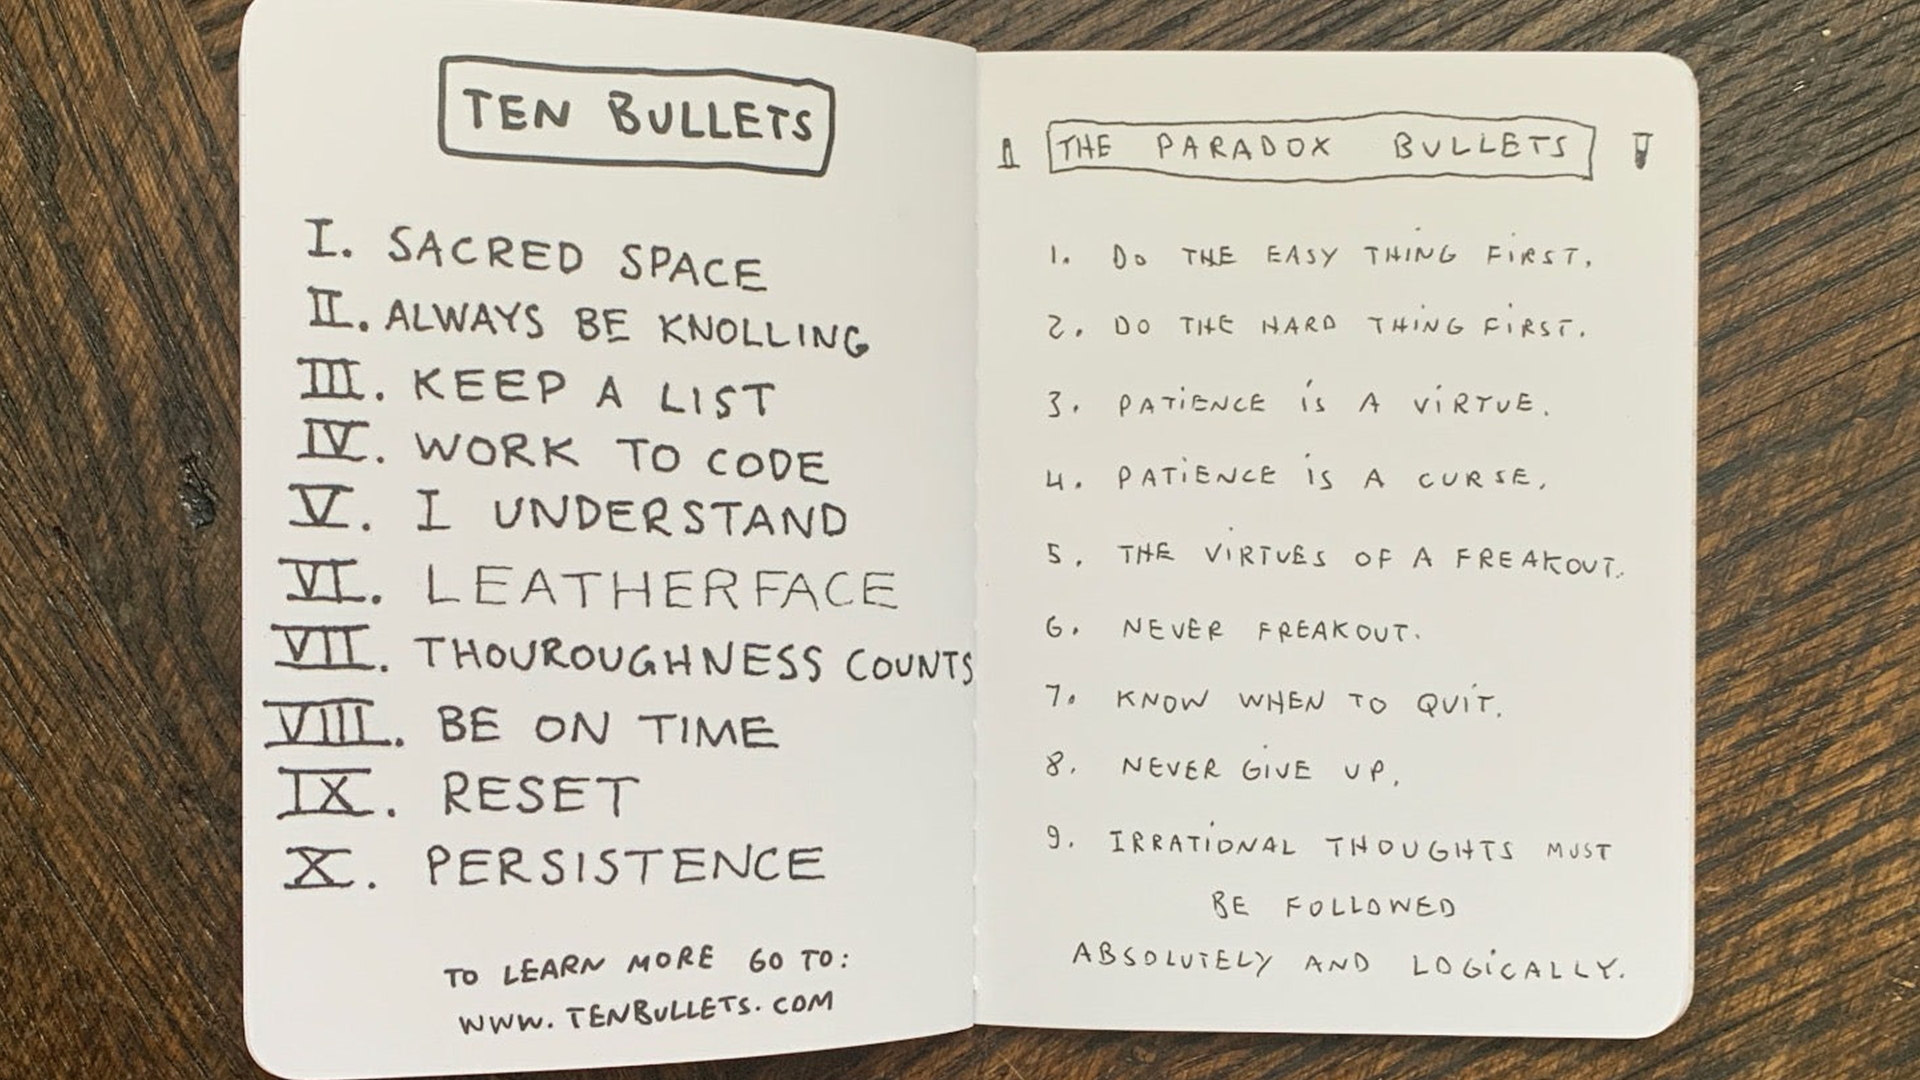 TEN BULLETS
I. SACRED SPACE
II. ALWAYS BE KNOLLING
III. KEEP A LIST
IV. WORK TO CODE
V. I UNDERSTAND
VI. LEATHERFACE
VII. THOUROUGHNESS COUNTS
VIII. BE ON TIME
IX. RESET
X. PERSISTENCE
TO LEARN MORE GO TO:
WWW.TENBULLETS.COM
THE PARADOX BULLETS
1. DO THE EASY THING FIRST.
2. DO THE HARD THING FIRST.
3. PATIENCE IS A VIRTUE.
4. PATIENCE IS A CURSE.
5. THE VIRTUES OF A FREAKOUT.
6. NEVER FREAKOUT.
7. KNOW WHEN TO QUIT.
8. NEVER GIVE UP.
9. IRRATIONAL THOUGHTS MUST
BE FOLLOWED
ABSOLUTELY AND LOGICALLY.